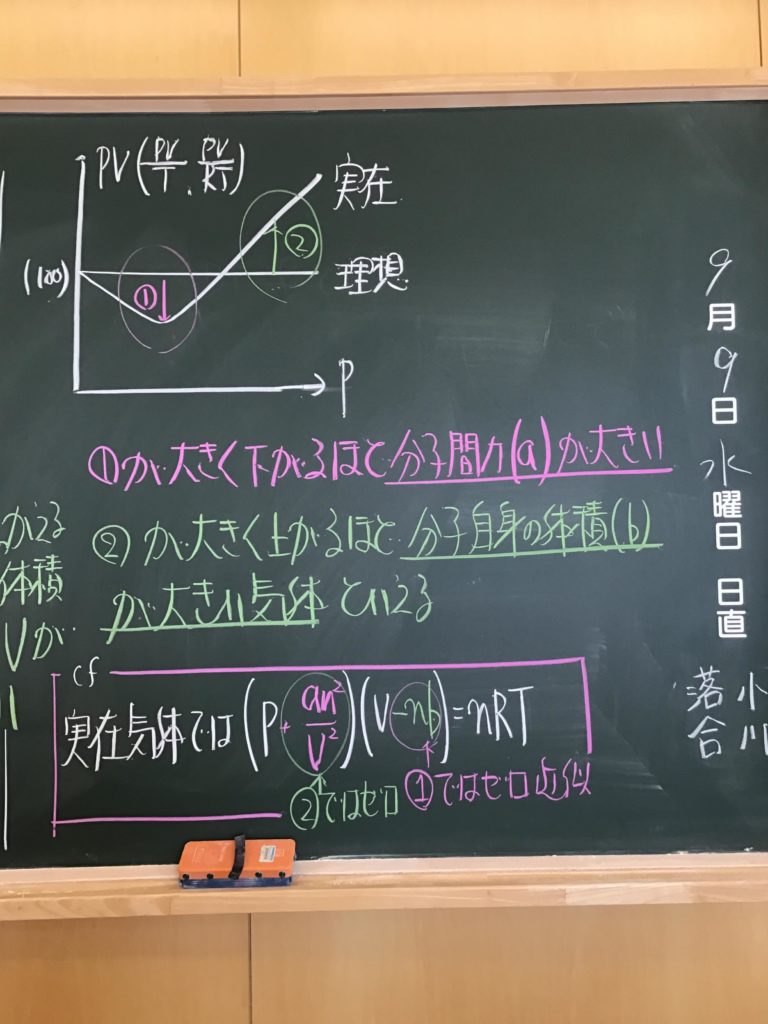 PV(PV/T, PV/RT)
実在
②
(1.00)
理想
①
P
①が大きく下がるほど分子間力(a)が大きい
②が大きく上がるほど分子自身の体積(b)
が大きい気体といえる
がえる
体積
Vが
cf
実在気体では(P+an²/V²)(V-nb)=nRT
②ではゼロ ①ではゼロ近似
9月9日水曜日 日直
小川
落合